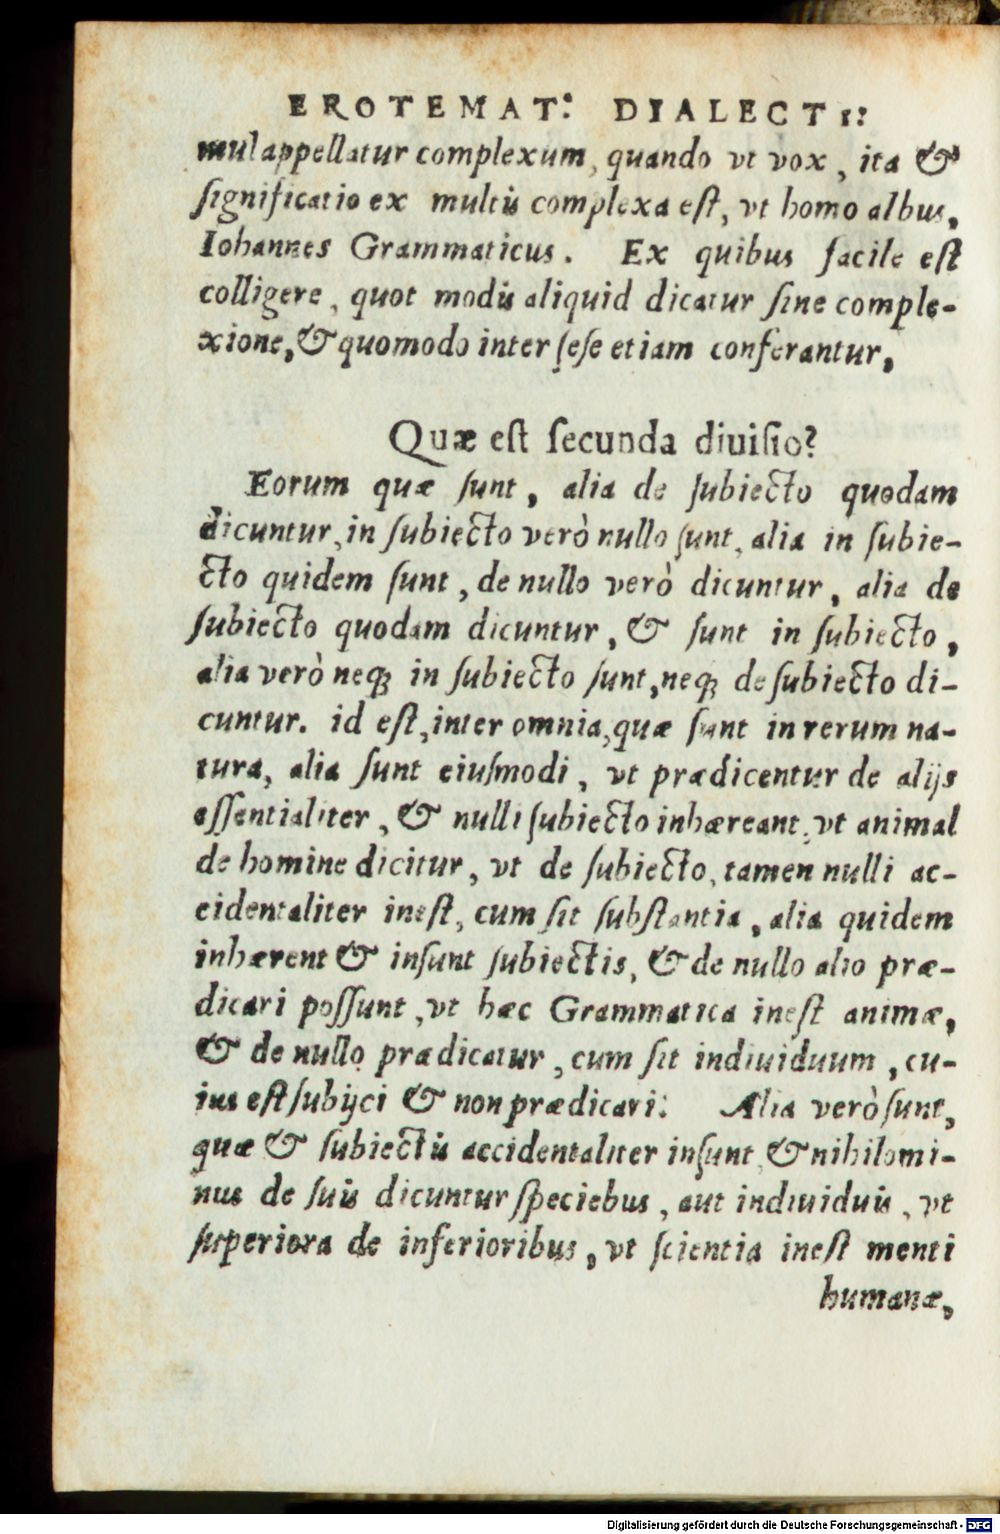 EROTEMAT: DIALECTI:
mul appellatur complexum, quando vt vox, ita &
ſignificatio ex multis complexa eſt, vt homo albus,
Iohannes Grammaticus. Ex quibus facile eſt
colligere, quot modis aliquid dicatur ſine comple-
xione, & quomodo inter ſeſe etiam conferantur,
Quæ eſt ſecunda diuiſio?
Eorum quæ ſunt, alia de ſubiecto quodam
dicuntur, in ſubiecto verò nullo ſunt, alia in ſubie-
cto quidem ſunt, de nullo verò dicuntur, alia de
ſubiecto quodam dicuntur, & ſunt in ſubiecto,
alia verò neqꝫ in ſubiecto ſunt, neqꝫ de ſubiecto di-
cuntur. id eſt, inter omnia, quæ ſunt in rerum na-
tura, alia ſunt eiuſmodi, vt prædicentur de alijs
eſſentialiter, & nulli ſubiecto inhæreant, vt animal
de homine dicitur, vt de ſubiecto, tamen nulli ac-
cidentaliter ineſt, cum ſit ſubſtantia, alia quidem
inhærent & inſunt ſubiectis, & de nullo alio præ-
dicari poſſunt, vt hæc Grammatica ineſt animæ,
& de nullo prædicatur, cum ſit indiuiduum, cu-
ius eſt ſubijci & non prædicari. Alia verò ſunt,
quæ & ſubiectis accidentaliter inſunt, & nihilomi-
nus de ſuis dicuntur ſpeciebus, aut indiuiduis, vt
ſuperiora de inferioribus, vt ſcientia ineſt menti
humanæ,
Digitalisierung gefördert durch die Deutsche Forschungsgemeinschaft - DFG